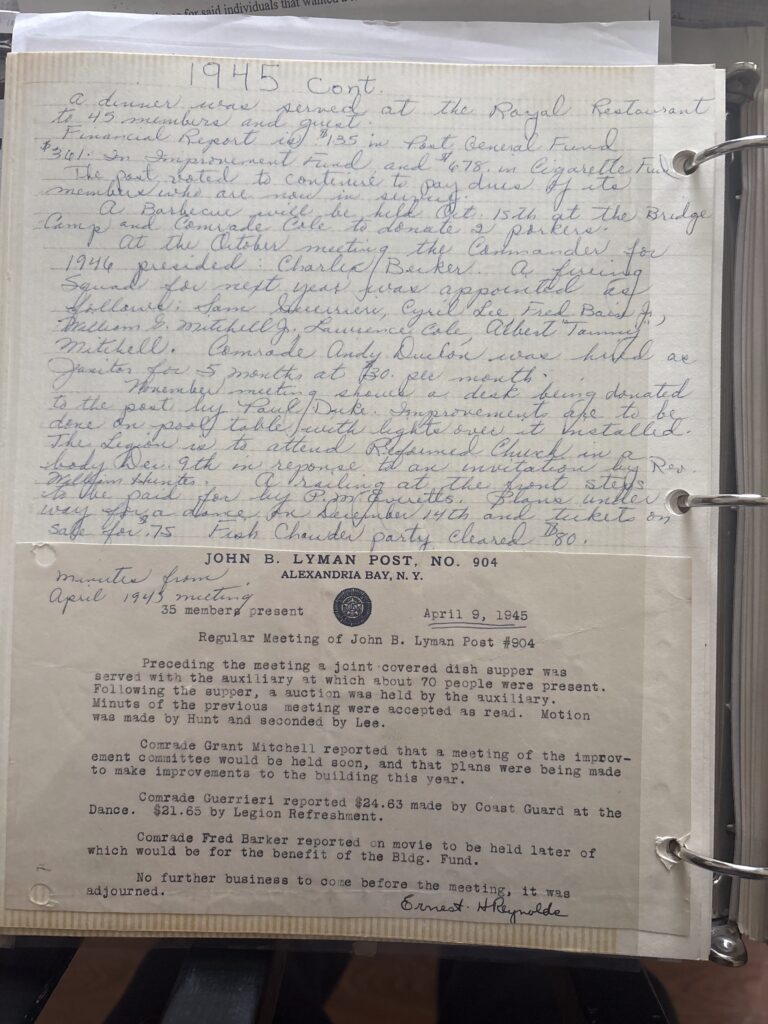 for said individuals that wanted
1945 Cont.
A dinner was served at the Royal Restaurant
to 45 members and guest.
Financial Report is $135 in Post General Fund
$361. In Improvement Fund, and $678. in Cigarette Fund
The post voted to continue to pay dues of its
members who are now in service.
A Barbecue will be held Oct. 15th at the Bridge
Camp and Comrade Cole to donate 2 porkers.
At the October meeting the Commander for
1946 presided: Charles Becker. A fireing
Squad for next year was appointed as
follows: Sam Guerrieri, Cyril Lee, Fred Bain Jr.,
William G. Mitchell Jr., Lawrence Cole, Albert "Tammy"
Mitchell. Comrade Andy Duclon was hired as
Janitor for 5 months at $30. per month.
November meeting shows a desk being donated
to the post by Paul Duke. Improvements are to be
done on pool table with lights over it installed.
The Legion is to attend Reformed Church in a
body Dec. 9th in reponse to an invitation by Rev.
William Hunter. A railing at the front steps
to be paid for by P.M. Everetts. Plans under
way for a dance on December 14th and tickets on
sale for $.75 Fish Chowder party cleared $80.
JOHN B. LYMAN POST, NO. 904
ALEXANDRIA BAY, N. Y.
Minutes from
April 1945 meeting
35 members present
April 9, 1945
Regular Meeting of John B. Lyman Post #904
Preceding the meeting a joint covered dish supper was
served with the auxiliary at which about 70 people were present.
Following the supper, a auction was held by the auxiliary.
Minuts of the previous meeting were accepted as read. Motion
was made by Hunt and seconded by Lee.
Comrade Grant Mitchell reported that a meeting of the improv-
ement committee would be held soon, and that plans were being made
to make improvements to the building this year.
Comrade Guerrieri reported $24.63 made by Coast Guard at the
Dance. $21.65 by Legion Refreshment.
Comrade Fred Barker reported on movie to be held later of
which would be for the benefit of the Bldg. Fund.
No further business to come before the meeting, it was
adjourned.
Ernest H Reynolds